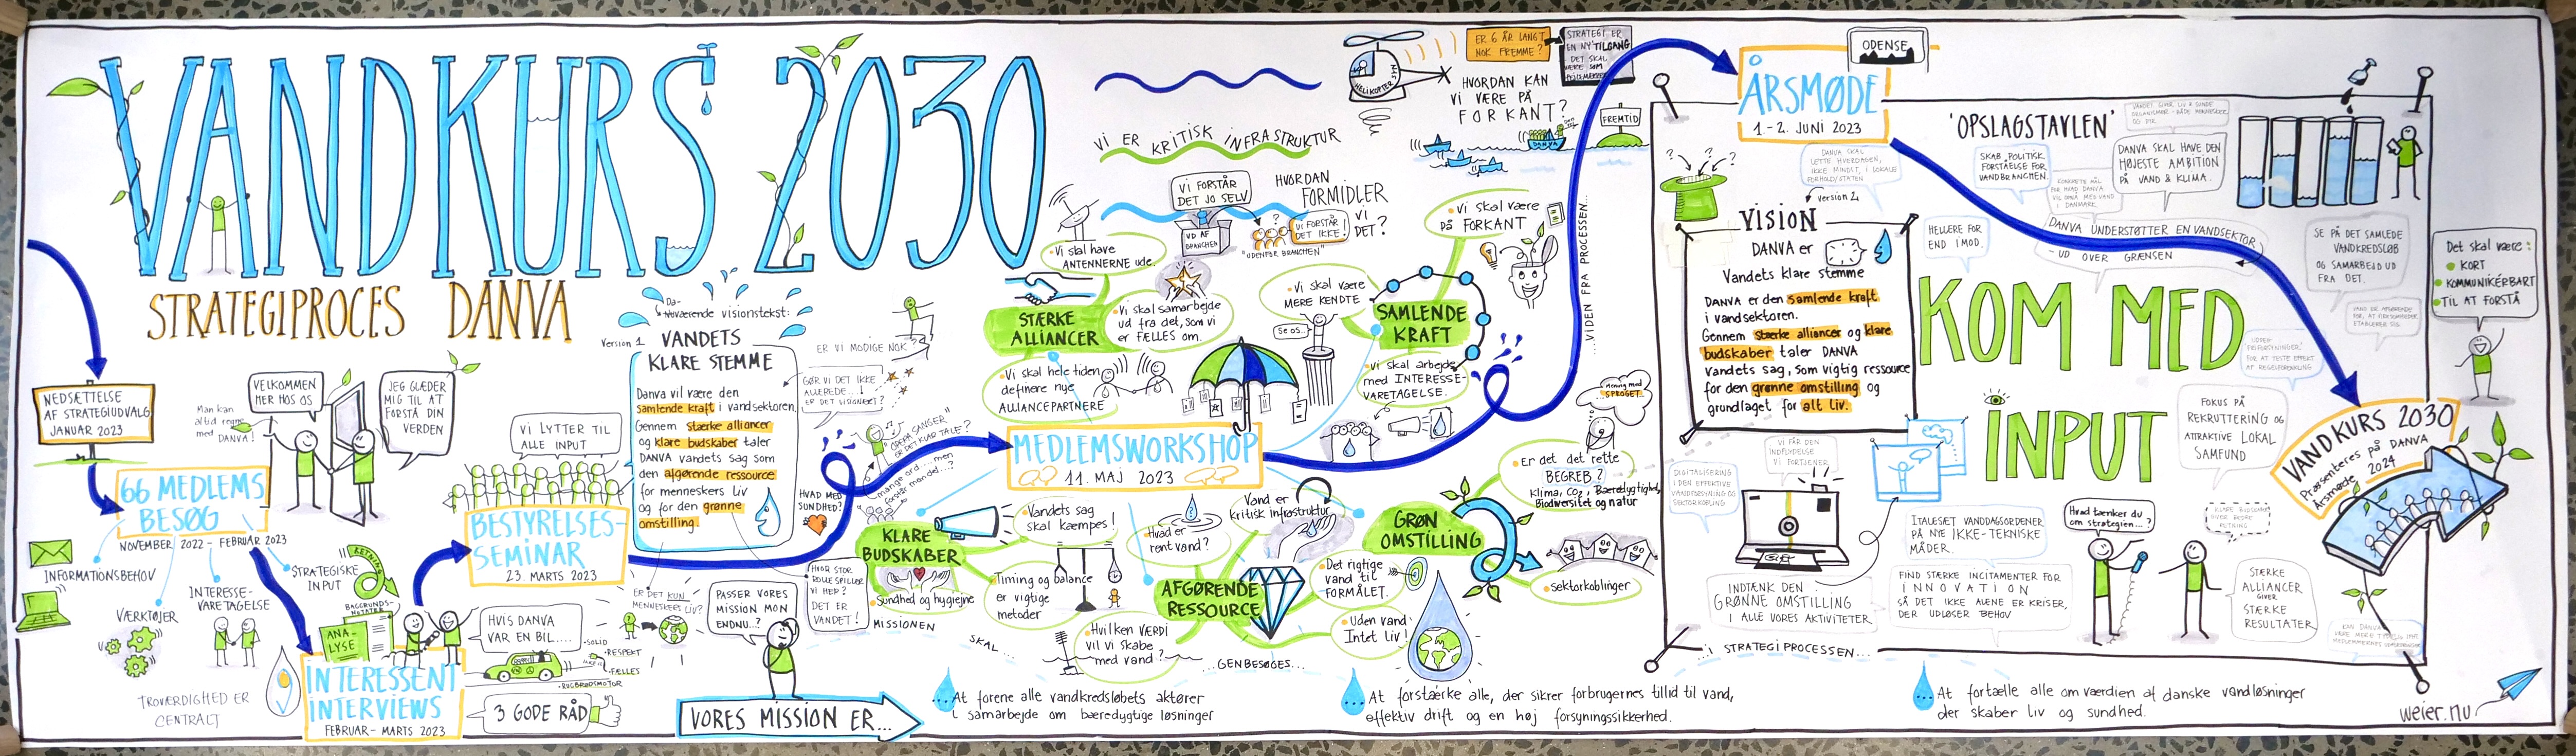 VANDKURS 2030
STRATEGIPROCES DANVA
NEDSÆTTELSE
AF STRATEGIUDVALG
JANUAR 2023
66 MEDLEMS
BESØG
NOVEMBER 2022 - FEBRUAR 2023
INFORMATIONSBEHOV
VÆRKTØJER
INTERESSE-
VARETAGELSE
STRATEGISKE
INPUT
RETNING
TROVÆRDIGHED ER
CENTRALT
Man kan
altid regne
med DANVA!
VELKOMMEN
HER HOS OS
JEG GLÆDER
MIG TIL AT
FORSTÅ DIN
VERDEN
BAGGRUNDS-
NOTATER
ANA-
LYSE
INTERESSENT
INTERVIEWS
FEBRUAR - MARTS 2023
HVIS DANVA
VAR EN BIL....
•SOLID
•RESPEKT
•FÆLLES
•RUGBRØDSMOTOR
3 GODE RÅD
VI LYTTER TIL
ALLE INPUT
BESTYRELSES-
SEMINAR
23. MARTS 2023
Da-
Nuværende visionstekst:
Version 1
VANDETS
KLARE STEMME
Danva vil være den
samlende kraft i vandsektoren.
Gennem stærke alliancer
og klare budskaber taler
DANVA vandets sag som
den afgørende ressource
for menneskers liv
og for den grønne
omstilling.
ER VI MODIGE NOK?
GØR VI DET IKKE
ALLEREDE...!
ER DET VISIONÆRT?
HVAD MED
SUNDHED!
ER DET KUN
MENNESKERS LIV?
HVOR STOR
ROLLE SPILLER
VI HER?
DET ER
VANDET!
PASSER VORES
MISSION MON
ENDNU...?
MISSIONEN
SKAL...
...GENBESØGES...
...I STRATEGIPROCESSEN...
VORES MISSION ER...
At forene alle vandkredsløbets aktører
i samarbejde om bæredygtige løsninger
At forstærke alle, der sikrer forbrugernes tillid til vand,
effektiv drift og en høj forsyningssikkerhed.
At fortælle alle om værdien af danske vandløsninger
der skaber liv og sundhed.
MEDLEMSWORKSHOP
11. MAJ 2023
STÆRKE
ALLIANCER
•Vi skal have
ANTENNERNE ude.
•Vi skal samarbejde
ud fra det, som vi
er FÆLLES om.
•Vi skal hele tiden
definere nye
ALLIANCEPARTNERE
VI ER KRITISK INFRASTRUKTUR
VI FORSTÅR
DET JO SELV
UD AF
BRANCHEN
HVORDAN
FORMIDLER
VI
DET?
VI FORSTÅR
DET IKKE!
"UDENFOR BRANCHEN"
SAMLENDE
KRAFT
•Vi skal være
MERE KENDTE
Se os...
•Vi skal være
på FORKANT
•Vi skal arbejde
med INTERESSE-
VARETAGELSE.
HELIKOPTER
ER 6 ÅR LANGT
NOK FREMME?
STRATEGI ER
EN NY TILGANG
DET SKAL
VÆRE SOM
HVORDAN KAN
VI VÆRE PÅ
FORKANT?
DANVA
FREMTID
...VIDEN FRA PROCESSEN...
KLARE
BUDSKABER
•Vandets sag
skal kæmpes!
•Sundhed og hygiejne
•Timing og balance
er vigtige
metoder
AFGØRENDE
RESSOURCE
•Hvad er
rent vand?
Vand er
kritisk infrastruktur
•Det rigtige
vand til
FORMÅLET.
•Uden vand
Intet liv!
•Hvilken VÆRDI
vil vi skabe
med vand?
GRØN
OMSTILLING
•Er det det rette
BEGREB?
Klima, CO2, Bæredygtighed,
Biodiversitet og natur
•Sektorkoblinger
mening med
SPROGET...
ÅRSMØDE
1.-2. JUNI 2023
ODENSE
'OPSLAGSTAVLEN'
version 2
VISION
DANVA er
Vandets klare stemme
DANVA er den samlende kraft
i vandsektoren.
Gennem stærke alliancer og klare
budskaber taler DANVA
vandets sag, som vigtig ressource
for den grønne omstilling og
grundlaget for alt liv.
DANVA SKAL
LETTE HVERDAGEN,
IKKE MINDST, I LOKALE
FORHOLD/STATEN
SKAB POLITISK
FORSTÅELSE FOR
VANDBRANCHEN.
KONKRETE MÅL
FOR HVAD DANVA
VIL OPNÅ MED VAND
I DANMARK.
DANVA SKAL HAVE DEN
HØJESTE AMBITION
PÅ VAND & KLIMA.
HELLERE FOR
END IMOD.
DANVA UNDERSTØTTER EN VANDSEKTOR
- UD OVER GRÆNSEN
SE PÅ DET SAMLEDE
VANDKREDSLØB
OG SAMARBEJD UD
FRA DET.
Det skal være:
•KORT
•KOMMUNIKÉRBART
•TIL AT FORSTÅ
KOM MED
INPUT
FOKUS PÅ
REKRUTTERING OG
ATTRAKTIVE LOKAL
SAMFUND
DIGITALISERING
I DEN EFFEKTIVE
VANDFORSYNING OG
SEKTORKOBLING
VI FÅR DEN
INDFLYDELSE
VI FORTJENER
INDTÆNK DEN
GRØNNE OMSTILLING
I ALLE VORES AKTIVITETER
ITALESÆT VANDDAGSORDENER
PÅ NYE IKKE-TEKNISKE
MÅDER.
FIND STÆRKE INCITAMENTER FOR
INNOVATION
SÅ DET IKKE ALENE ER KRISER,
DER UDLØSER BEHOV
Hvad tænker du
om strategien...?
STÆRKE
ALLIANCER
GIVER
STÆRKE
RESULTATER
VANDKURS 2030
Præsenteres på DANVA
Årsmøde 2024
weier.nu